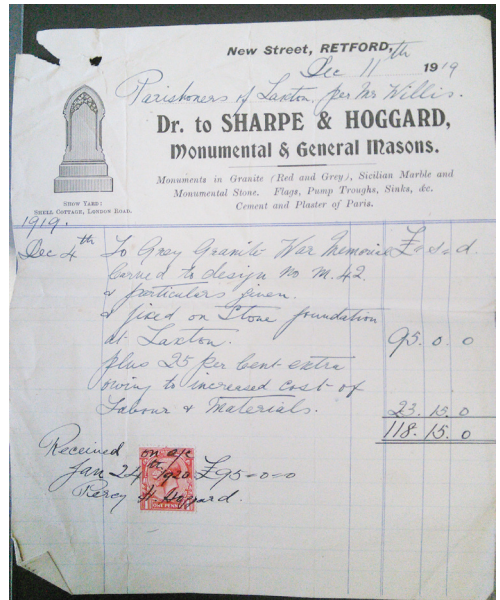 New Street, RETFORD,
Dec 11th 1919
Parishoners of Laxton, per Mr Willis.
Dr. to SHARPE & HOGGARD,
Monumental & General Masons.
Monuments in Granite (Red and Grey), Sicilian Marble and
Monumental Stone. Flags, Pump Troughs, Sinks, &c.
Cement and Plaster of Paris.
SHOW YARD:
SHELL COTTAGE, LONDON ROAD.
1919.
Dec 4th To Grey Granite War Memorial £ s d.
carved to design No M.42
& particulars given.
& fixed on Stone foundation
at Laxton. 95. 0. 0
plus 25 per cent extra
owing to increased cost of
Labour & Materials. 23. 15. 0
118. 15. 0
Received on a/c
Jan 24th 1920 £95-0-0
Percy H. Hoggard.
ONE PENNY